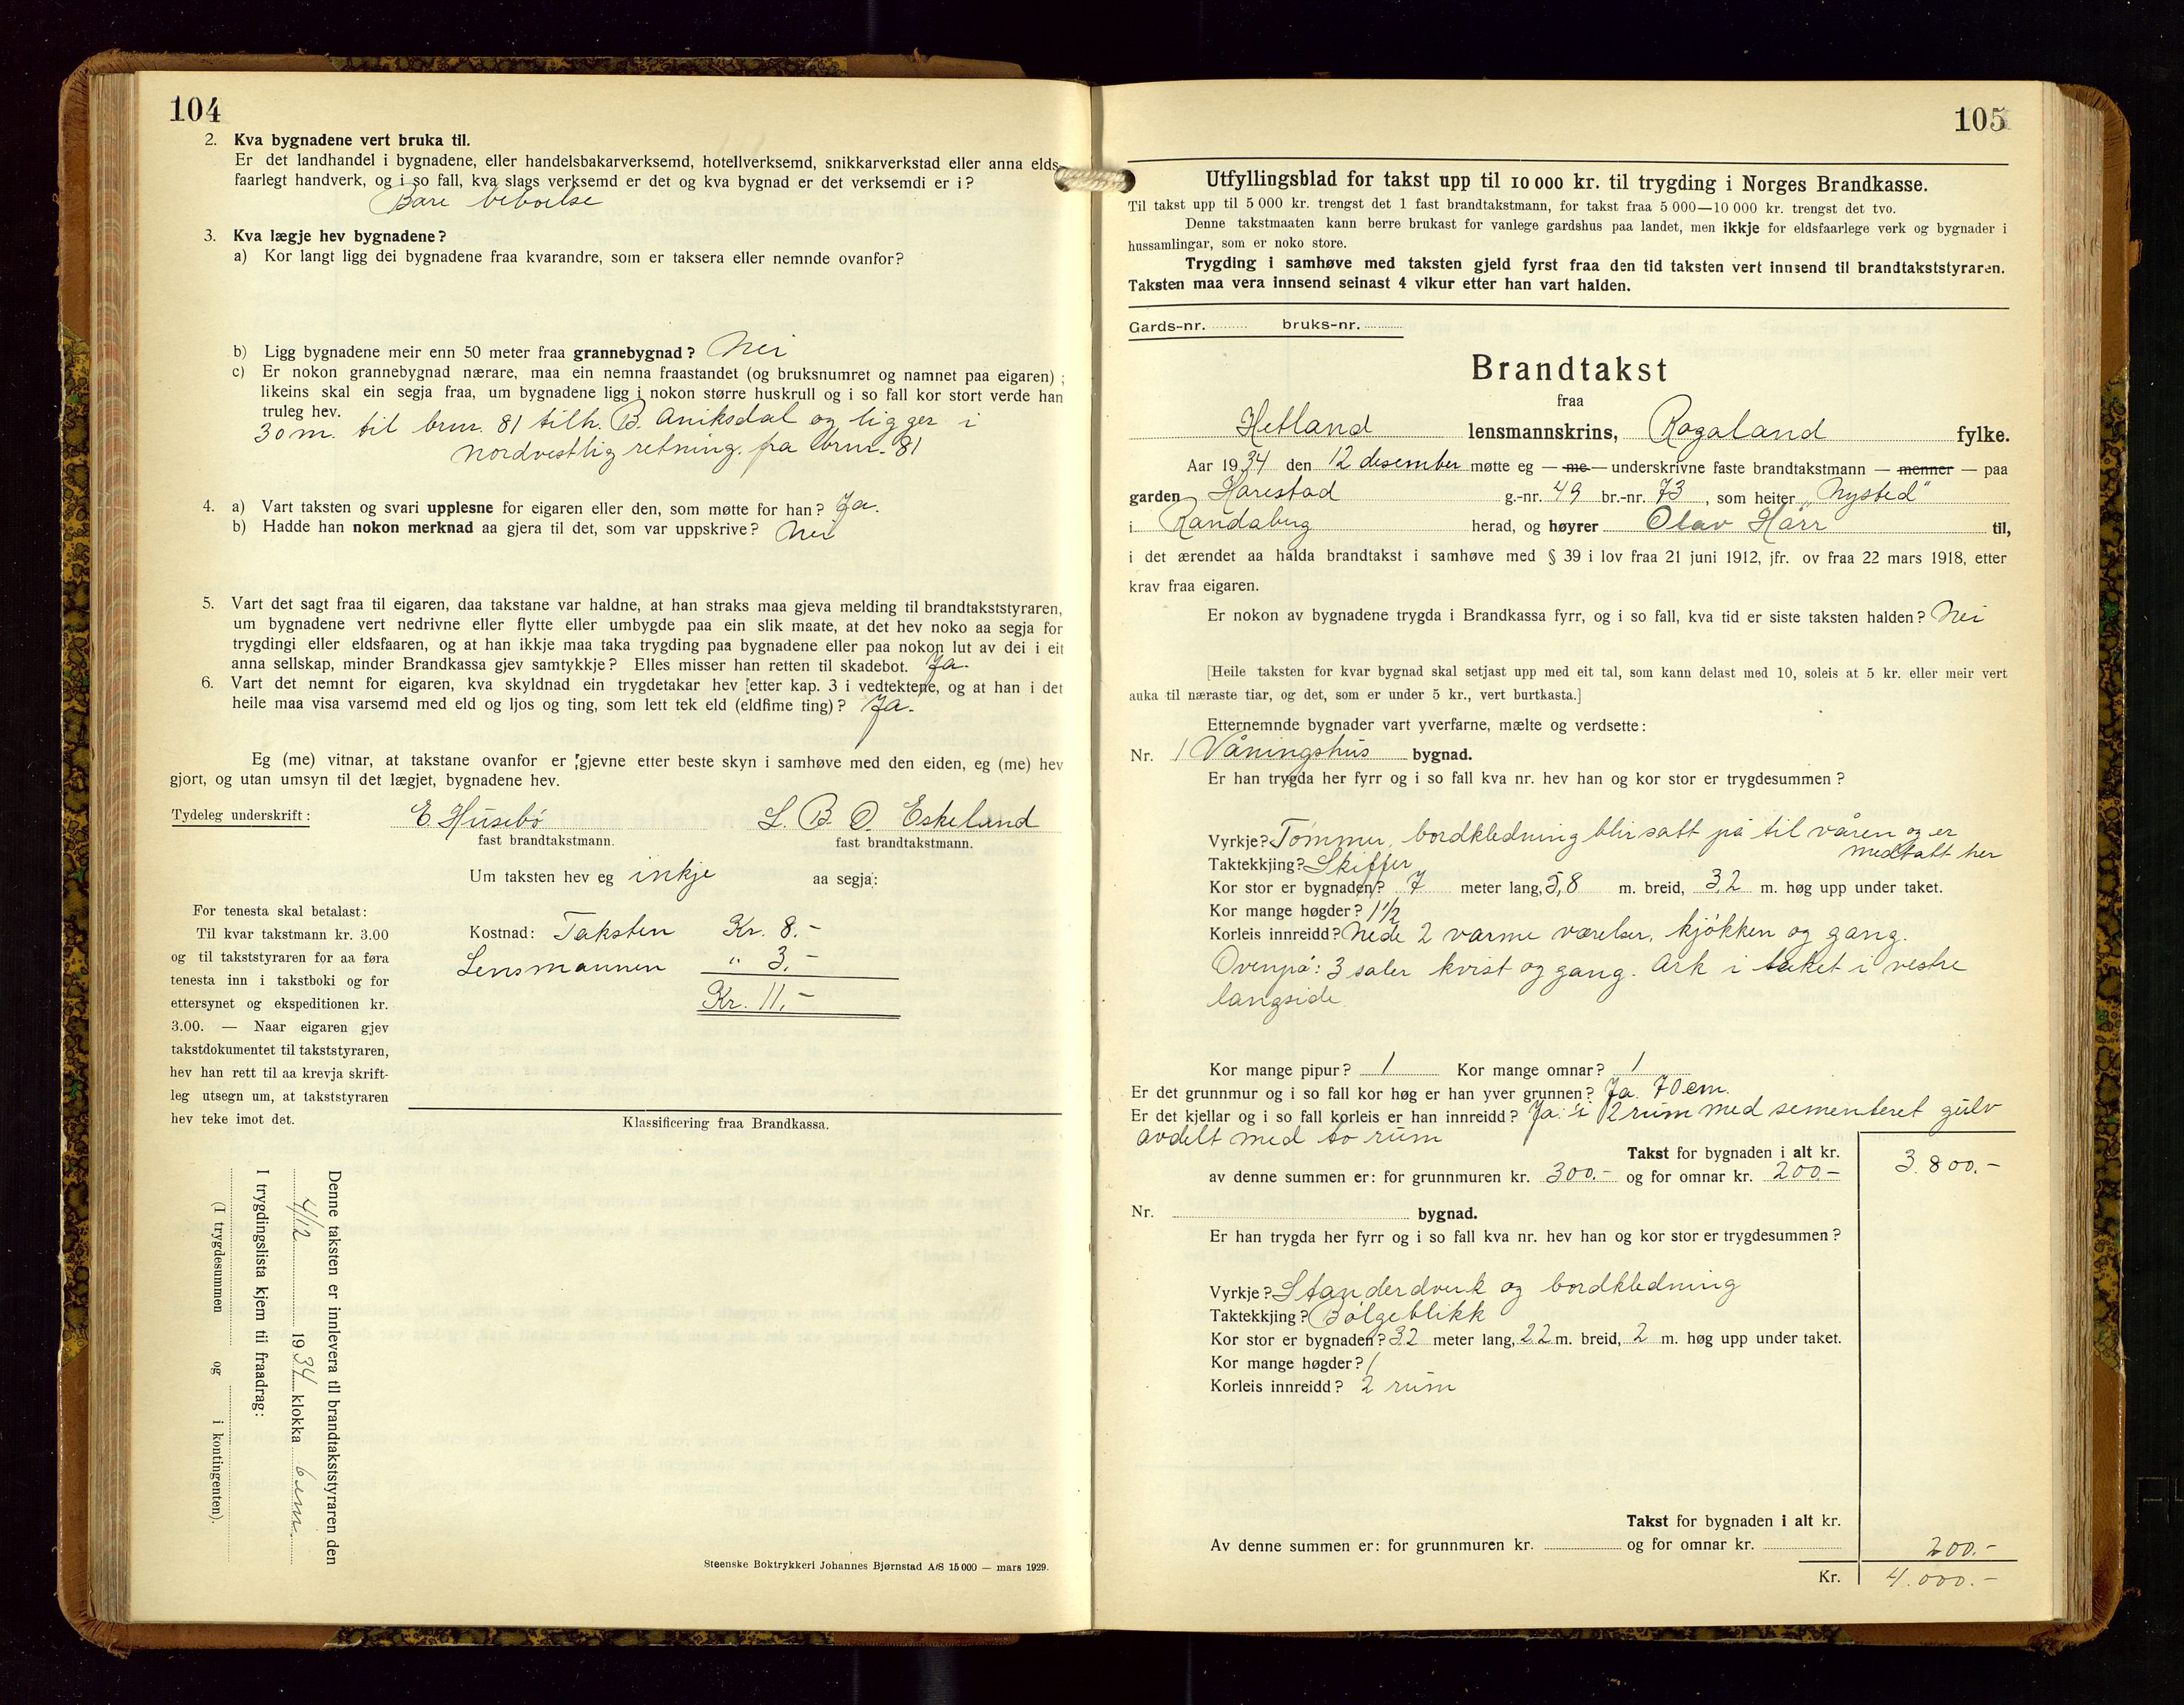 104
2. Kva bygnadene vert bruka til.
Er det landhandel i bygnadene, eller handelsbakarverksemd, hotellverksemd, snikkarverkstad eller anna elds-
faarlegt handverk, og i so fall, kva slags verksemd er det og kva bygnad er det verksemdi er i?
Bare beboelse
3. Kva lægje hev bygnadene?
a) Kor langt ligg dei bygnadene fraa kvarandre, som er taksera eller nemnde ovanfor?
b) Ligg bygnadene meir enn 50 meter fraa grannebygnad? Nei
c) Er nokon grannebygnad nærare, maa ein nemna fraastandet (og bruksnumret og namnet paa eigaren);
likeins skal ein segja fraa, um bygnadene ligg i nokon større huskrull og i so fall kor stort verde han
truleg hev.
30 m. til brnr. 81 tilh. B. Aniksdal og ligger i
nordvestlig retning. fra brnr. 81
4. a) Vart taksten og svari upplesne for eigaren eller den, som møtte for han? Ja.
b) Hadde han nokon merknad aa gjera til det, som var uppskrive? Nei
5. Vart det sagt fraa til eigaren, daa takstane var haldne, at han straks maa gjeva melding til brandtakststyraren,
um bygnadene vert nedrivne eller flytte eller umbygde paa ein slik maate, at det hev noko aa segja for
trygdingi eller eldsfaaren, og at han ikkje maa taka trygding paa bygnadene eller paa nokon lut av dei i eit
anna sellskap, minder Brandkassa gjev samtykkje? Elles misser han retten til skadebot. Ja.
6. Vart det nemnt for eigaren, kva skyldnad ein trygdetakar hev [etter kap. 3 i vedtektene, og at han i det
heile maa visa varsemd med eld og ljos og ting, som lett tek eld (eldfime ting)? Ja.
Eg (me) vitnar, at takstane ovanfor er gjevne etter beste skyn i samhøve med den eiden, eg (me) hev
gjort, og utan umsyn til det lægjet, bygnadene hev.
Tydeleg underskrift: E. Husebø L. B. O. Eskeland
fast brandtakstmann. fast brandtakstmann.
Um taksten hev eg inkje aa segja:
Kostnad: Taksten Kr. 8.-
Lensmannen " 3.-
Kr. 11.-
For tenesta skal betalast:
Til kvar takstmann kr. 3.00
og til takststyraren for aa føra
tenesta inn i takstboki og for
ettersynet og ekspeditionen kr.
3.00. — Naar eigaren gjev
takstdokumentet til takststyraren,
hev han rett til aa krevja skrift-
leg utsegn um, at takststyraren
hev teke imot det.
Klassificering fraa Brandkassa.
Denne taksten er innlevera til brandtakststyraren den
4/12 1934 klokka 6 em.
I trygdingslista kjem til fraadrag:
(I trygdesummen og i kontingenten).
Steenske Boktrykkeri Johannes Bjørnstad A/S 15 000 — mars 1929.
105
Utfyllingsblad for takst upp til 10 000 kr. til trygding i Norges Brandkasse.
Til takst upp til 5 000 kr. trengst det 1 fast brandtakstmann, for takst fraa 5 000—10 000 kr. trengst det tvo.
Denne takstmaaten kann berre brukast for vanlege gardshus paa landet, men ikkje for eldsfaarlege verk og bygnader i
hussamlingar, som er noko store.
Trygding i samhøve med taksten gjeld fyrst fraa den tid taksten vert innsend til brandtakststyraren.
Taksten maa vera innsend seinast 4 vikur etter han vart halden.
Gards-nr. bruks-nr.
Brandtakst
fraa
Hetland lensmannskrins, Rogaland fylke.
Aar 1934 den 12 desember møtte eg — me — underskrivne faste brandtakstmann — menner — paa
garden Harestad g.-nr. 49 br.-nr. 73, som heiter "Nysted"
i Randaberg herad, og høyrer Olav Harr til,
i det ærendet aa halda brandtakst i samhøve med § 39 i lov fraa 21 juni 1912, jfr. ov fraa 22 mars 1918, etter
krav fraa eigaren.
Er nokon av bygnadene trygda i Brandkassa fyrr, og i so fall, kva tid er siste taksten halden? Nei
[Heile taksten for kvar bygnad skal setjast upp med eit tal, som kann delast med 10, soleis at 5 kr. eller meir vert
auka til næraste tiar, og det, som er under 5 kr., vert burtkasta.]
Etternemnde bygnader vart yverfarne, mælte og verdsette:
Nr. 1 Våningshus bygnad.
Er han trygda her fyrr og i so fall kva nr. hev han og kor stor er trygdesummen?
Vyrkje? Tømmer, bordkledning blir satt på til våren og er
medtatt her
Taktekkjing? Skiffer
Kor stor er bygnaden? 7 meter lang, 5,8 m. breid, 3,2 m. høg upp under taket.
Kor mange høgder? 1½
Korleis innreidd? Nede 2 varme værelser, kjøkken og gang.
Ovenpå: 3 saler kvist og gang. Ark i taket i vestre
langside.
Kor mange pipur? 1 Kor mange omnar? 1
Er det grunnmur og i so fall kor høg er han yver grunnen? Ja. 70 cm.
Er det kjellar og i so fall korleis er han innreidd? Ja. i 2 rum med sementeret gulv
avdelt med to rum
Takst for bygnaden i alt kr. 3.800.-
av denne summen er: for grunnmuren kr. 300.- og for omnar kr. 200-
Nr. bygnad.
Er han trygda her fyrr og i so fall kva nr. hev han og kor stor er trygdesummen?
Vyrkje? Standerdverk og bordkledning
Taktekkjing? Bølgeblikk
Kor stor er bygnaden? 3,2 meter lang, 2,2 m. breid, 2 m. høg upp under taket.
Kor mange høgder? 1
Korleis innreidd? 2 rum
Takst for bygnaden i alt kr.
Av denne summen er: for grunnmuren kr. og for omnar kr. 200.-
Kr. 4.000.-